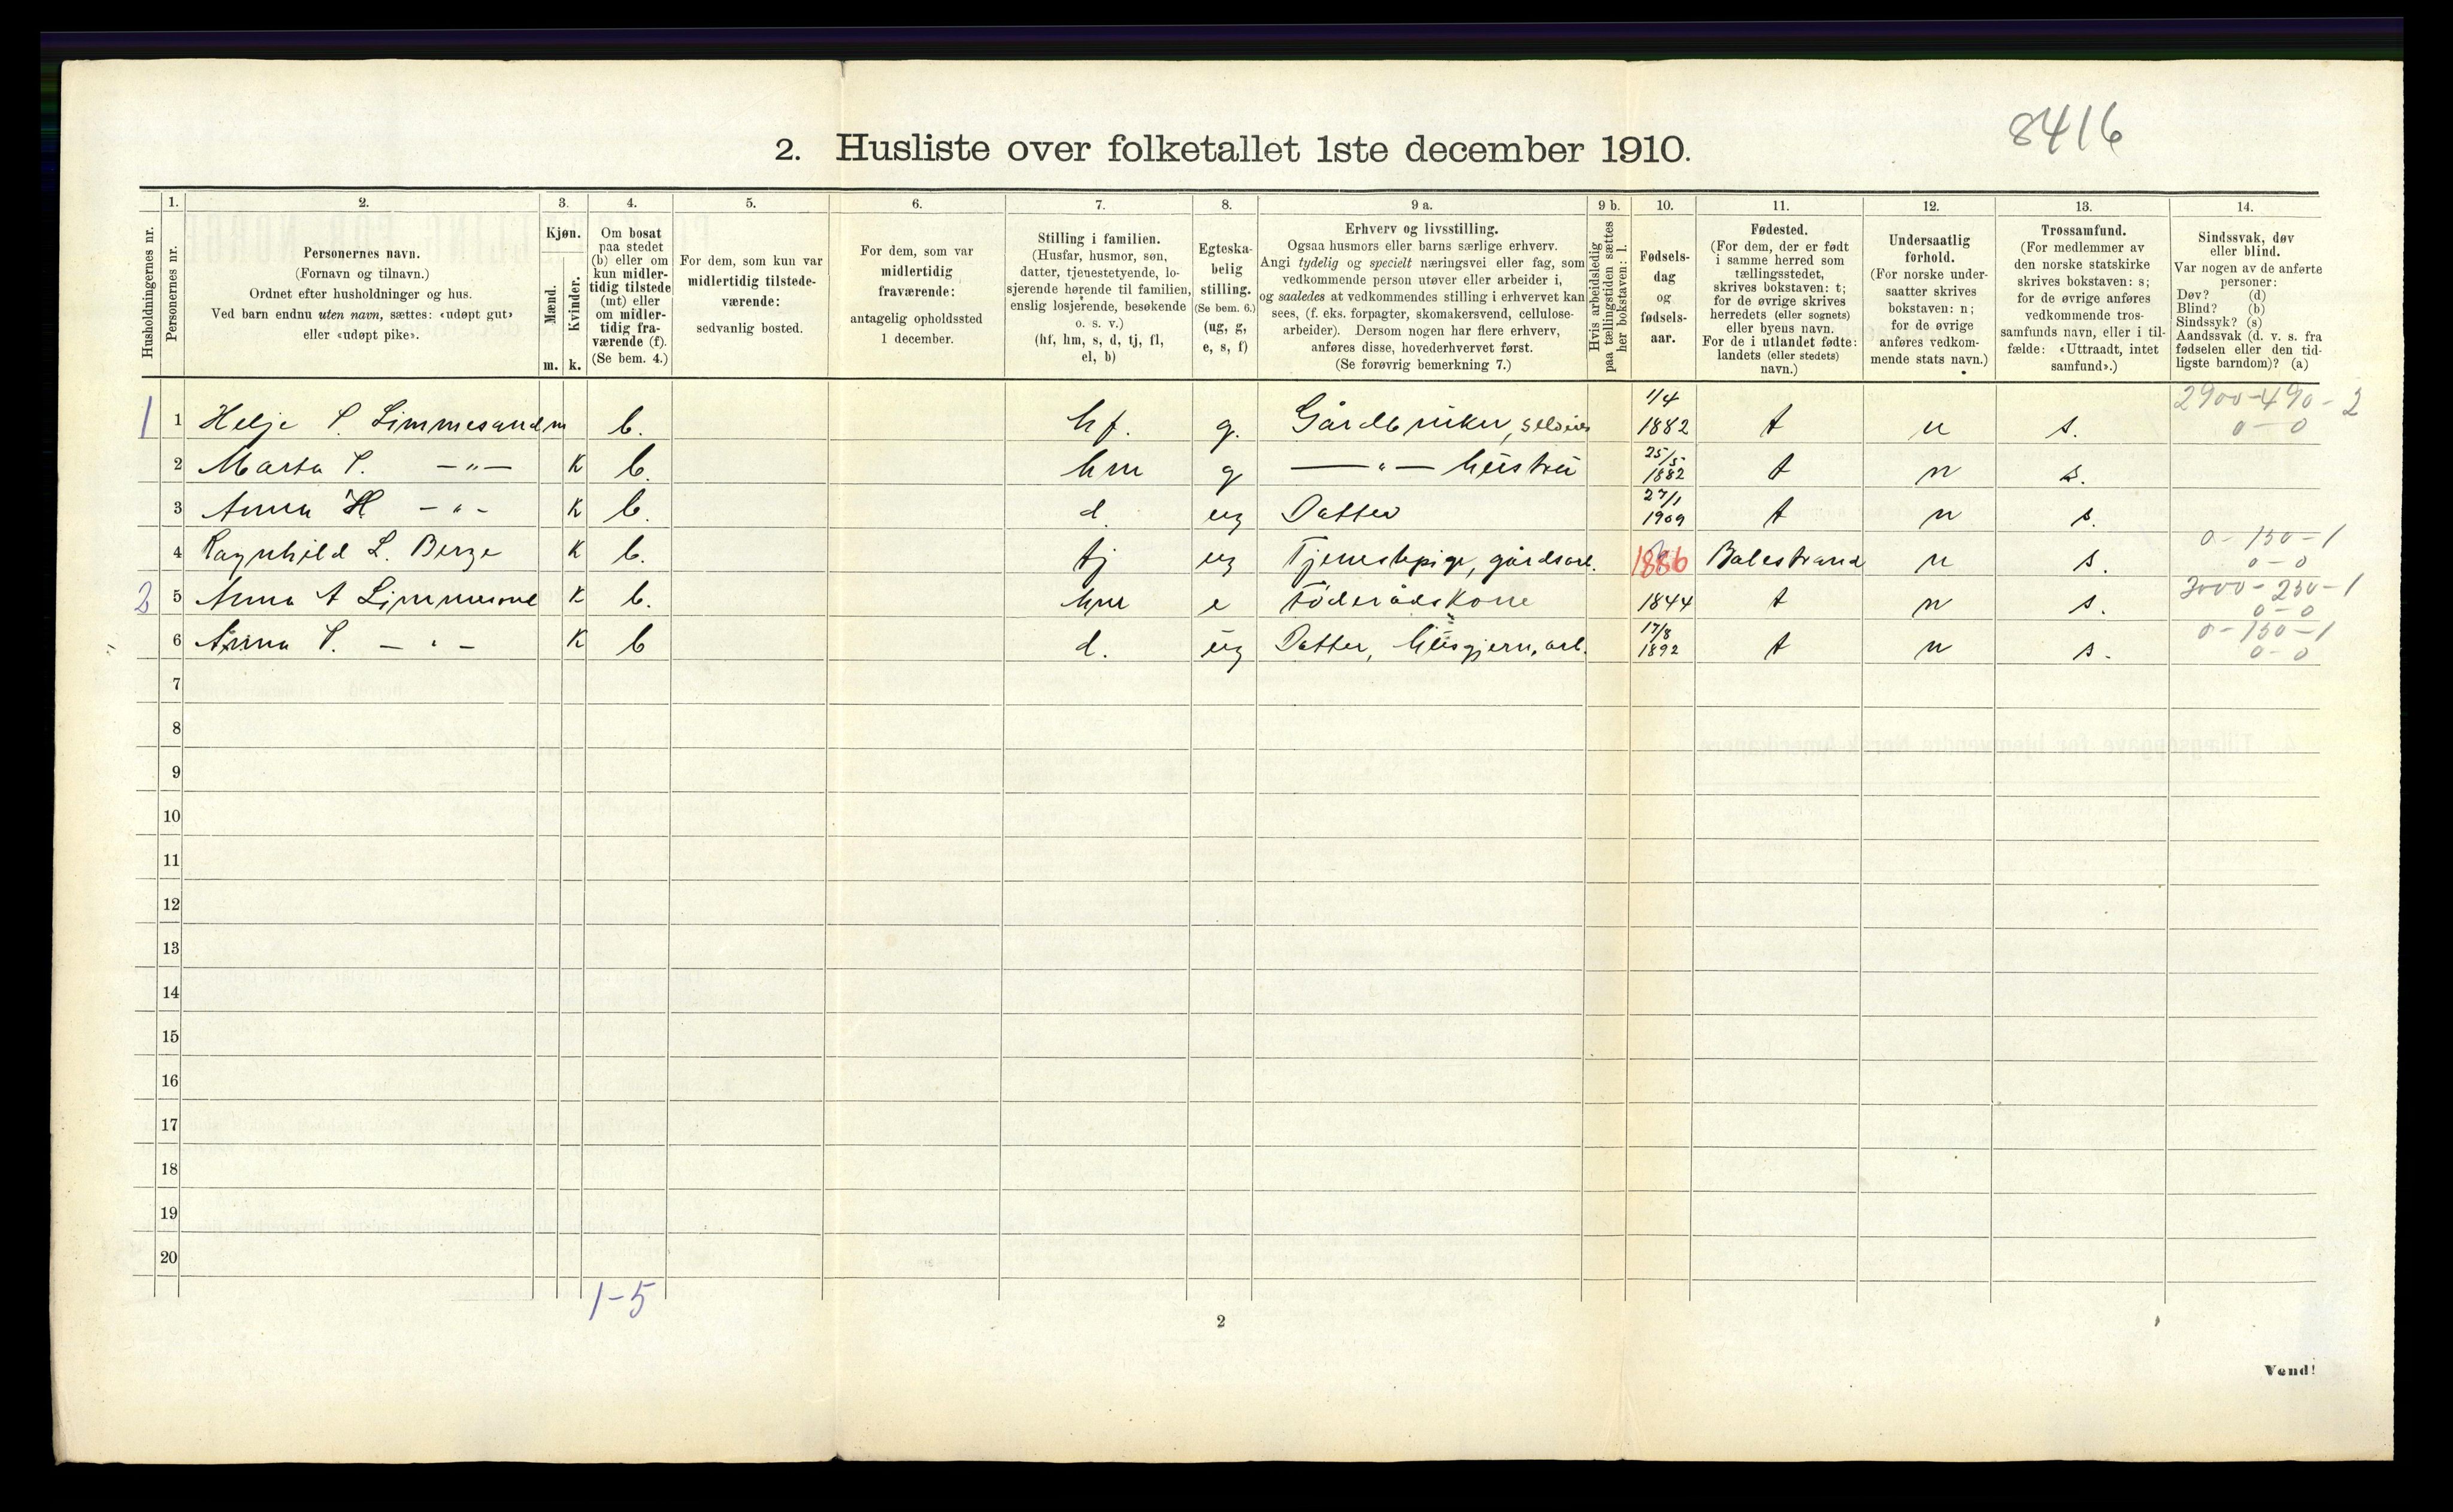 8416
2. Husliste over folketallet 1ste december 1910.
Husholdningernes nr.
1.
Personernes nr.
2.
Personernes navn.
(Fornavn og tilnavn.)
Ordnet efter husholdninger og hus.
Ved barn endnu uten navn, sættes: «udøpt gut»
eller «udøpt pike».
3.
Kjøn.
Mænd.
Kvinder.
m. k.
4.
Om bosat
paa stedet
(b) eller om
kun midler-
tidig tilstede
(mt) eller
om midler-
tidig fra-
værende (f).
(Se bem. 4.)
5.
For dem, som kun var
midlertidig tilstede-
værende:
sedvanlig bosted.
6.
For dem, som var
midlertidig
fraværende:
antagelig opholdssted
1 december.
7.
Stilling i familien.
(Husfar, husmor, søn,
datter, tjenestetyende, lo-
sjerende hørende til familien,
enslig losjerende, besøkende
o. s. v.)
(hf, hm, s, d, tj, fl,
el, b)
8.
Egteska-
belig
stilling.
(Se bem. 6.)
(ug, g,
e, s, f)
9 a.
Erhverv og livsstilling.
Ogsaa husmors eller barns særlige erhverv.
Angi tydelig og specielt næringsvei eller fag, som
vedkommende person utøver eller arbeider i,
og saaledes at vedkommendes stilling i erhvervet kan
sees, (f. eks. forpagter, skomakersvend, cellulose-
arbeider). Dersom nogen har flere erhverv,
anføres disse, hovederhvervet først.
(Se forøvrig bemerkning 7.)
9 b.
Hvis arbeidsledig
paa tællingstiden sættes
her bokstaven: l.
10.
Fødsels-
dag
og
fødsels-
aar.
11.
Fødested.
(For dem, der er født
i samme herred som
tællingsstedet,
skrives bokstaven: t;
for de øvrige skrives
herredets (eller sognets)
eller byens navn.
For de i utlandet fødte:
landets (eller stedets)
navn.)
12.
Undersaatlig
forhold.
(For norske under-
saatter skrives
bokstaven: n;
for de øvrige
anføres vedkom-
mende stats navn.)
13.
Trossamfund.
(For medlemmer av
den norske statskirke
skrives bokstaven: s;
for de øvrige anføres
vedkommende tros-
samfunds navn, eller i til-
fælde: «Uttraadt, intet
samfund».)
14.
Sindssvak, døv
eller blind.
Var nogen av de anførte
personer:
Døv? (d)
Blind? (b)
Sindssyk? (s)
Aandssvak (d. v. s. fra
fødselen eller den tid-
ligste barndom)? (a)
1 1 Helje S. Limmesand m b. hf. g. Gårdbruker, selveier 1/4 1882 t n s. 2900-490-2 0-0
2 Marta S. —„— K b. hm g —„— hustru 25/5 1882 t n s.
3 Anna H —„— K b. d. ug Datter 27/1 1909 t n s.
4 Ragnhild L. Berge K b. tj ug Tjenestepige, gårdsarb. 1886 Balestrand n s. 0-150-1 0-0
2 5 Anna A Limmesand K b. hm e Föderådskone 1844 t n s. 3000-250-1 0-0
6 Anna S. —„— K b d. ug Datter, husgjern, arb. 17/8 1892 t n s. 0-150-1 0-0
7
8
9
10
11
12
13
14
15
16
17
18
19
20
1-5
2
Vend!